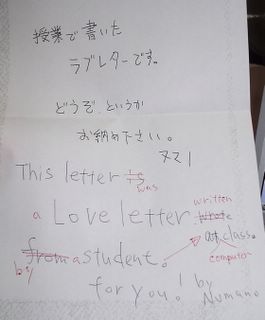 授業で書いた
ラブレターです。
どうぞ、というか
お納め下さい。
ヌマノ
This letter is was
a Love letter wrote written
at class. computer
from by a student.
for you! by Numano